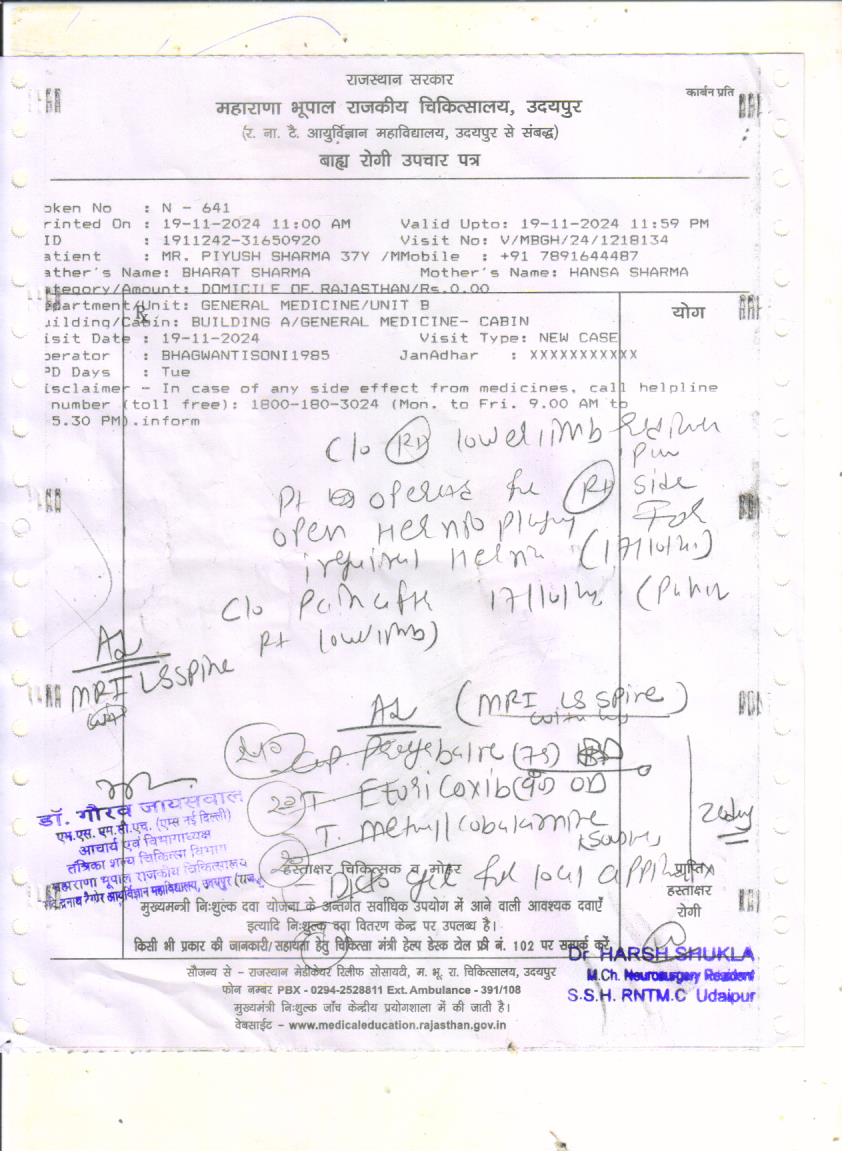 राजस्थान सरकार
कार्बन प्रति
महाराणा भूपाल राजकीय चिकित्सालय, उदयपुर
(र. ना. टै. आयुर्विज्ञान महाविद्यालय, उदयपुर से संबद्ध)
बाह्य रोगी उपचार पत्र
oken No : N - 641
rinted On : 19-11-2024 11:00 AM Valid Upto: 19-11-2024 11:59 PM
ID : 1911242-31650920 Visit No: V/MBGH/24/1218134
atient : MR. PIYUSH SHARMA 37Y /MMobile : +91 7891644487
ather's Name: BHARAT SHARMA Mother's Name: HANSA SHARMA
ategory/Amount: DOMICILE OF RAJASTHAN/Rs.0.00
partment/Unit: GENERAL MEDICINE/UNIT B
योग
uilding/Cabin: BUILDING A/GENERAL MEDICINE- CABIN
isit Date : 19-11-2024 Visit Type: NEW CASE
perator : BHAGWANTISONI1985 JanAdhar : XXXXXXXXXXX
PD Days : Tue
isclaimer - In case of any side effect from medicines, call helpline
number (toll free): 1800-180-3024 (Mon. to Fri. 9.00 AM to
5.30 PM).inform
C/o Rt lower limb
Pt operated Rt side
open Hernioplasty For
C/o Pain 17/10/24
Rt lower limb)
MRI LS Spine
(MRI LS Spine)
T. Etoricoxib OD
T.
gel for local
डॉ. गौरव जायसवाल
एम.एस. एम.सी.एच. (एम्स नई दिल्ली)
आचार्य एवं विभागाध्यक्ष
तंत्रिका शल्य चिकित्सा विभाग
महाराणा भूपाल राजकीय चिकित्सालय
हस्ताक्षर चिकित्सक व मोहर
प्राप्ति
हस्ताक्षर
रोगी
मुख्यमन्त्री निःशुल्क दवा योजना के अन्तर्गत सर्वाधिक उपयोग में आने वाली आवश्यक दवाएँ
इत्यादि निःशुल्क दवा वितरण केन्द्र पर उपलब्ध है।
किसी भी प्रकार की जानकारी/सहायता हेतु चिकित्सा मंत्री हेल्प डेस्क टोल फ्री नं. 102 पर सम्पर्क करें
Dr HARSH SHUKLA
M.Ch. Neurosurgery Resident
S.S.H. RNTM.C Udaipur
सौजन्य से - राजस्थान मेडीकेयर रिलीफ सोसायटी, म. भू. रा. चिकित्सालय, उदयपुर
फोन नम्बर PBX - 0294-2528811 Ext. Ambulance - 391/108
मुख्यमंत्री निःशुल्क जाँच केन्द्रीय प्रयोगशाला में की जाती है।
वेबसाईट - www.medicaleducation.rajasthan.gov.in